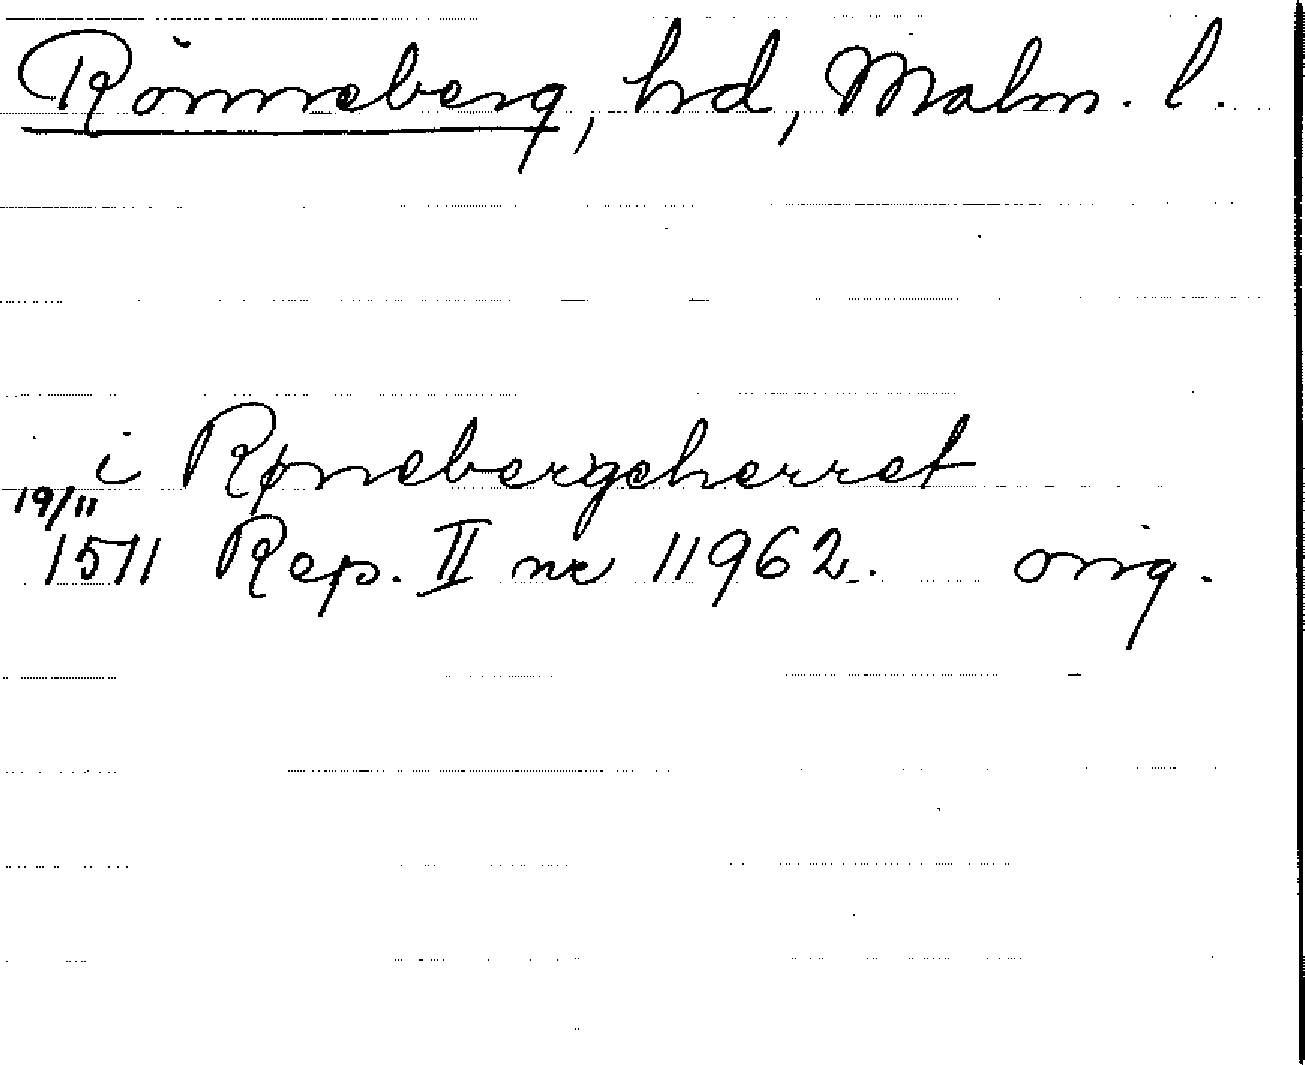 Rönneberg, hd, Malm. l.
i Rønebergeherret
19/11
1511 Rep. II nr 11962. orig.